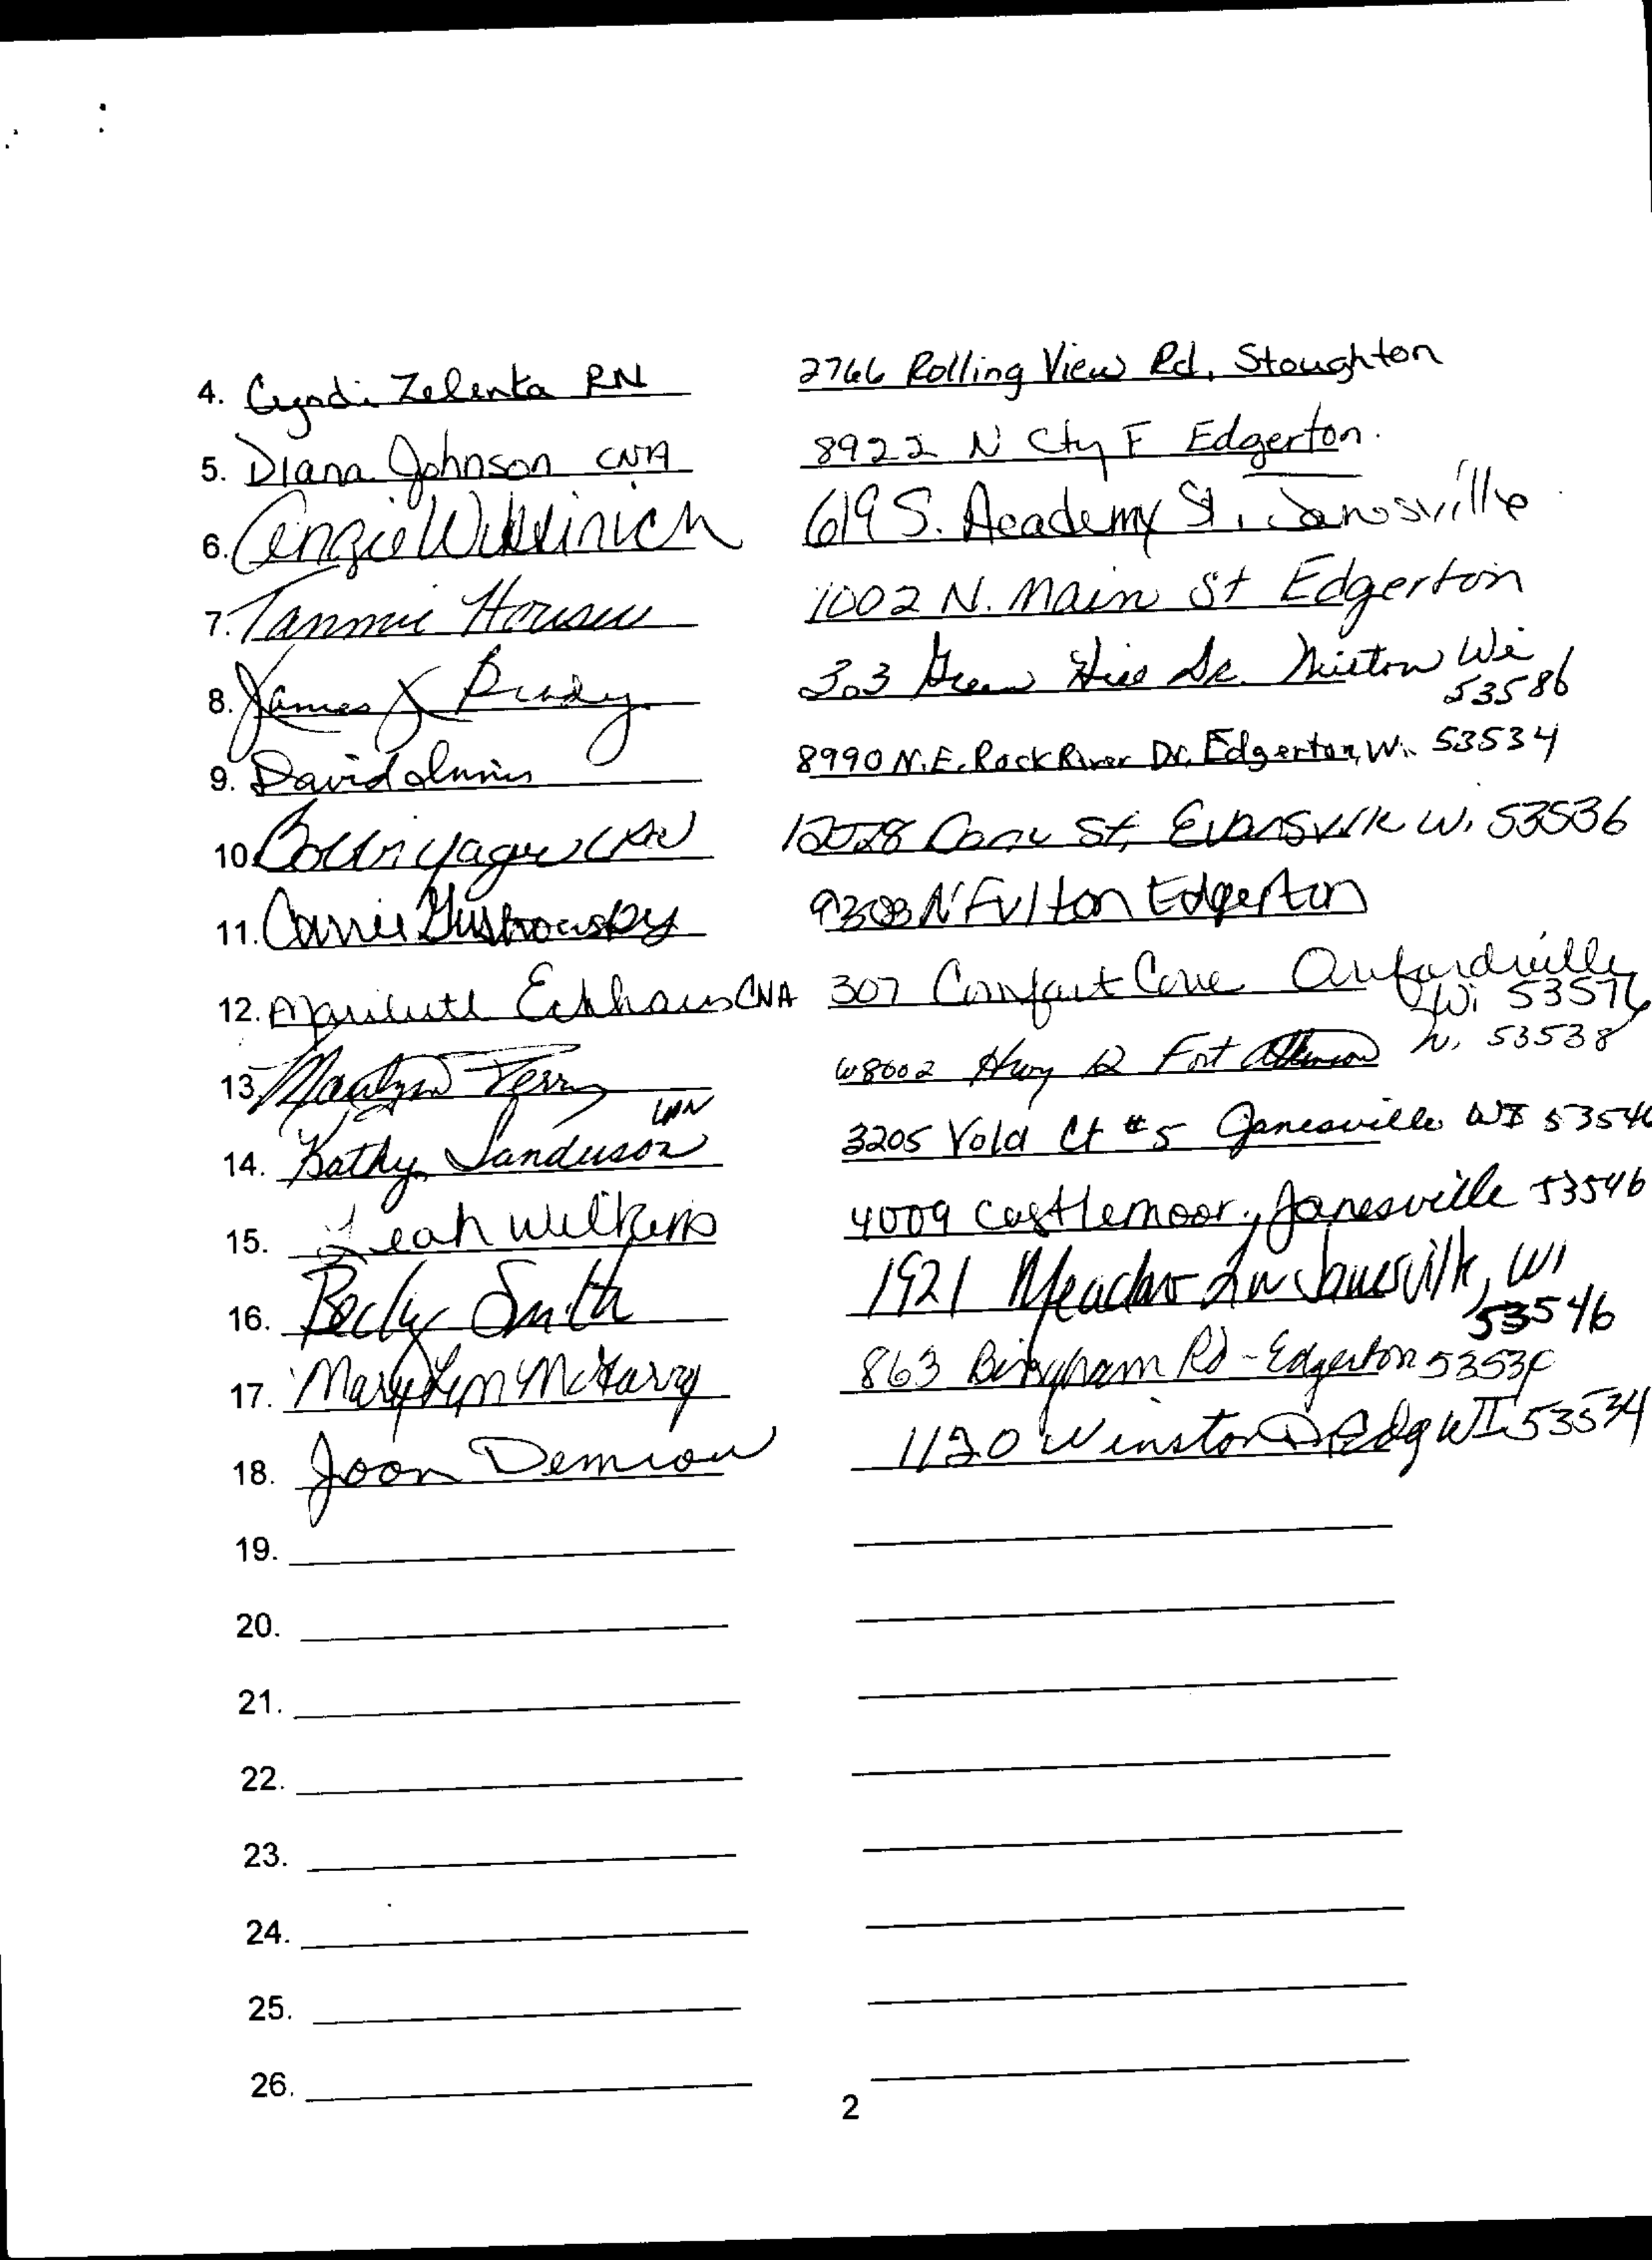 4. Cyndi Zelenka RN 2766 Rolling View Rd, Stoughton
5. Diana Johnson CNA 8922 N Cty F Edgerton.
6. Angie 619 S. Academy St, Janesville
7. Tammie 1002 N. Main St Edgerton
8. James J Brady 303 Green Hill Dr. Milton Wi
53586
9. David Innis 8990 N.E. Rock River Dr, Edgerton, Wi. 53534
10. Yager St, Evansville Wi 53536
11. Carrie N Fulton Edgerton
12. CNA 307 Comfort Cove Orfordville
Wi 53576
13. Marilyn Terry W8602 Hwy Fort Atkinson Wi. 53538
14. Kathy Sanderson 3205 Vold Ct #5 Janesville WI
15. Leah Wilkens 4009 Castlemoor, Janesville 53546
16. Becky Smith 1921 Meadow Ln Janesville, WI
53546
17. Mary Lynn 863 Bingham Rd - Edgerton 53534
18. Joan Demrow 1120 Winston Dr Edg WI 53534
19.
20.
21.
22.
23.
24.
25.
26.
2